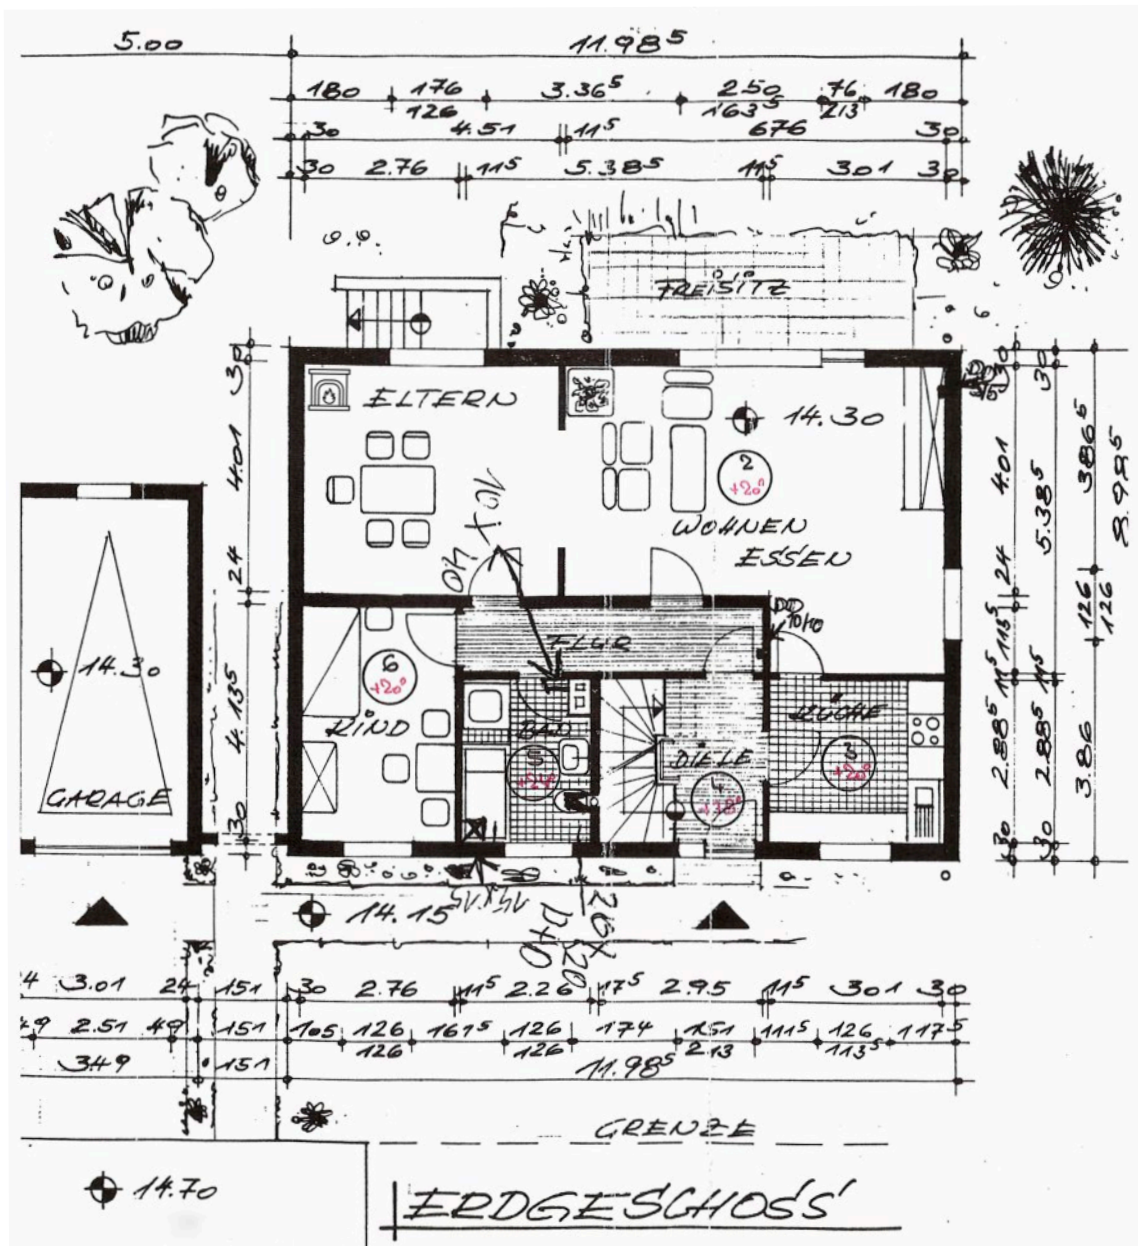 5.00 11.98⁵
180 176 3.36⁵ 250 76 180
126 163⁵ 213
30 4.51 11⁵ 676 30
30 2.76 11⁵ 5.38⁵ 11⁵ 301 30
FREISITZ
ELTERN
14.30
2
+20°
WOHNEN
ESSEN
FLUR
6
+20°
KIND
BAD
5
+24°
DIELE
4
+18°
KÜCHE
3
+20°
14.30
GARAGE
30
4.01
24
4.13⁵
30
30
4.01
24
115⁵
11⁵
2.88⁵
30
30
5.38⁵
11⁵
2.88⁵
30
386⁵
126
126
3.86
8.98⁵
14.15
15x15
20x20
D+D
3.01 24 151 30 2.76 11⁵ 2.26 17⁵ 2.95 11⁵ 301 30
49 2.51 49 151 105 126 161⁵ 126 174 151 111⁵ 126 117⁵
126 126 213 113⁵
349 151 11.98⁵
GRENZE
14.70
ERDGESCHOSS